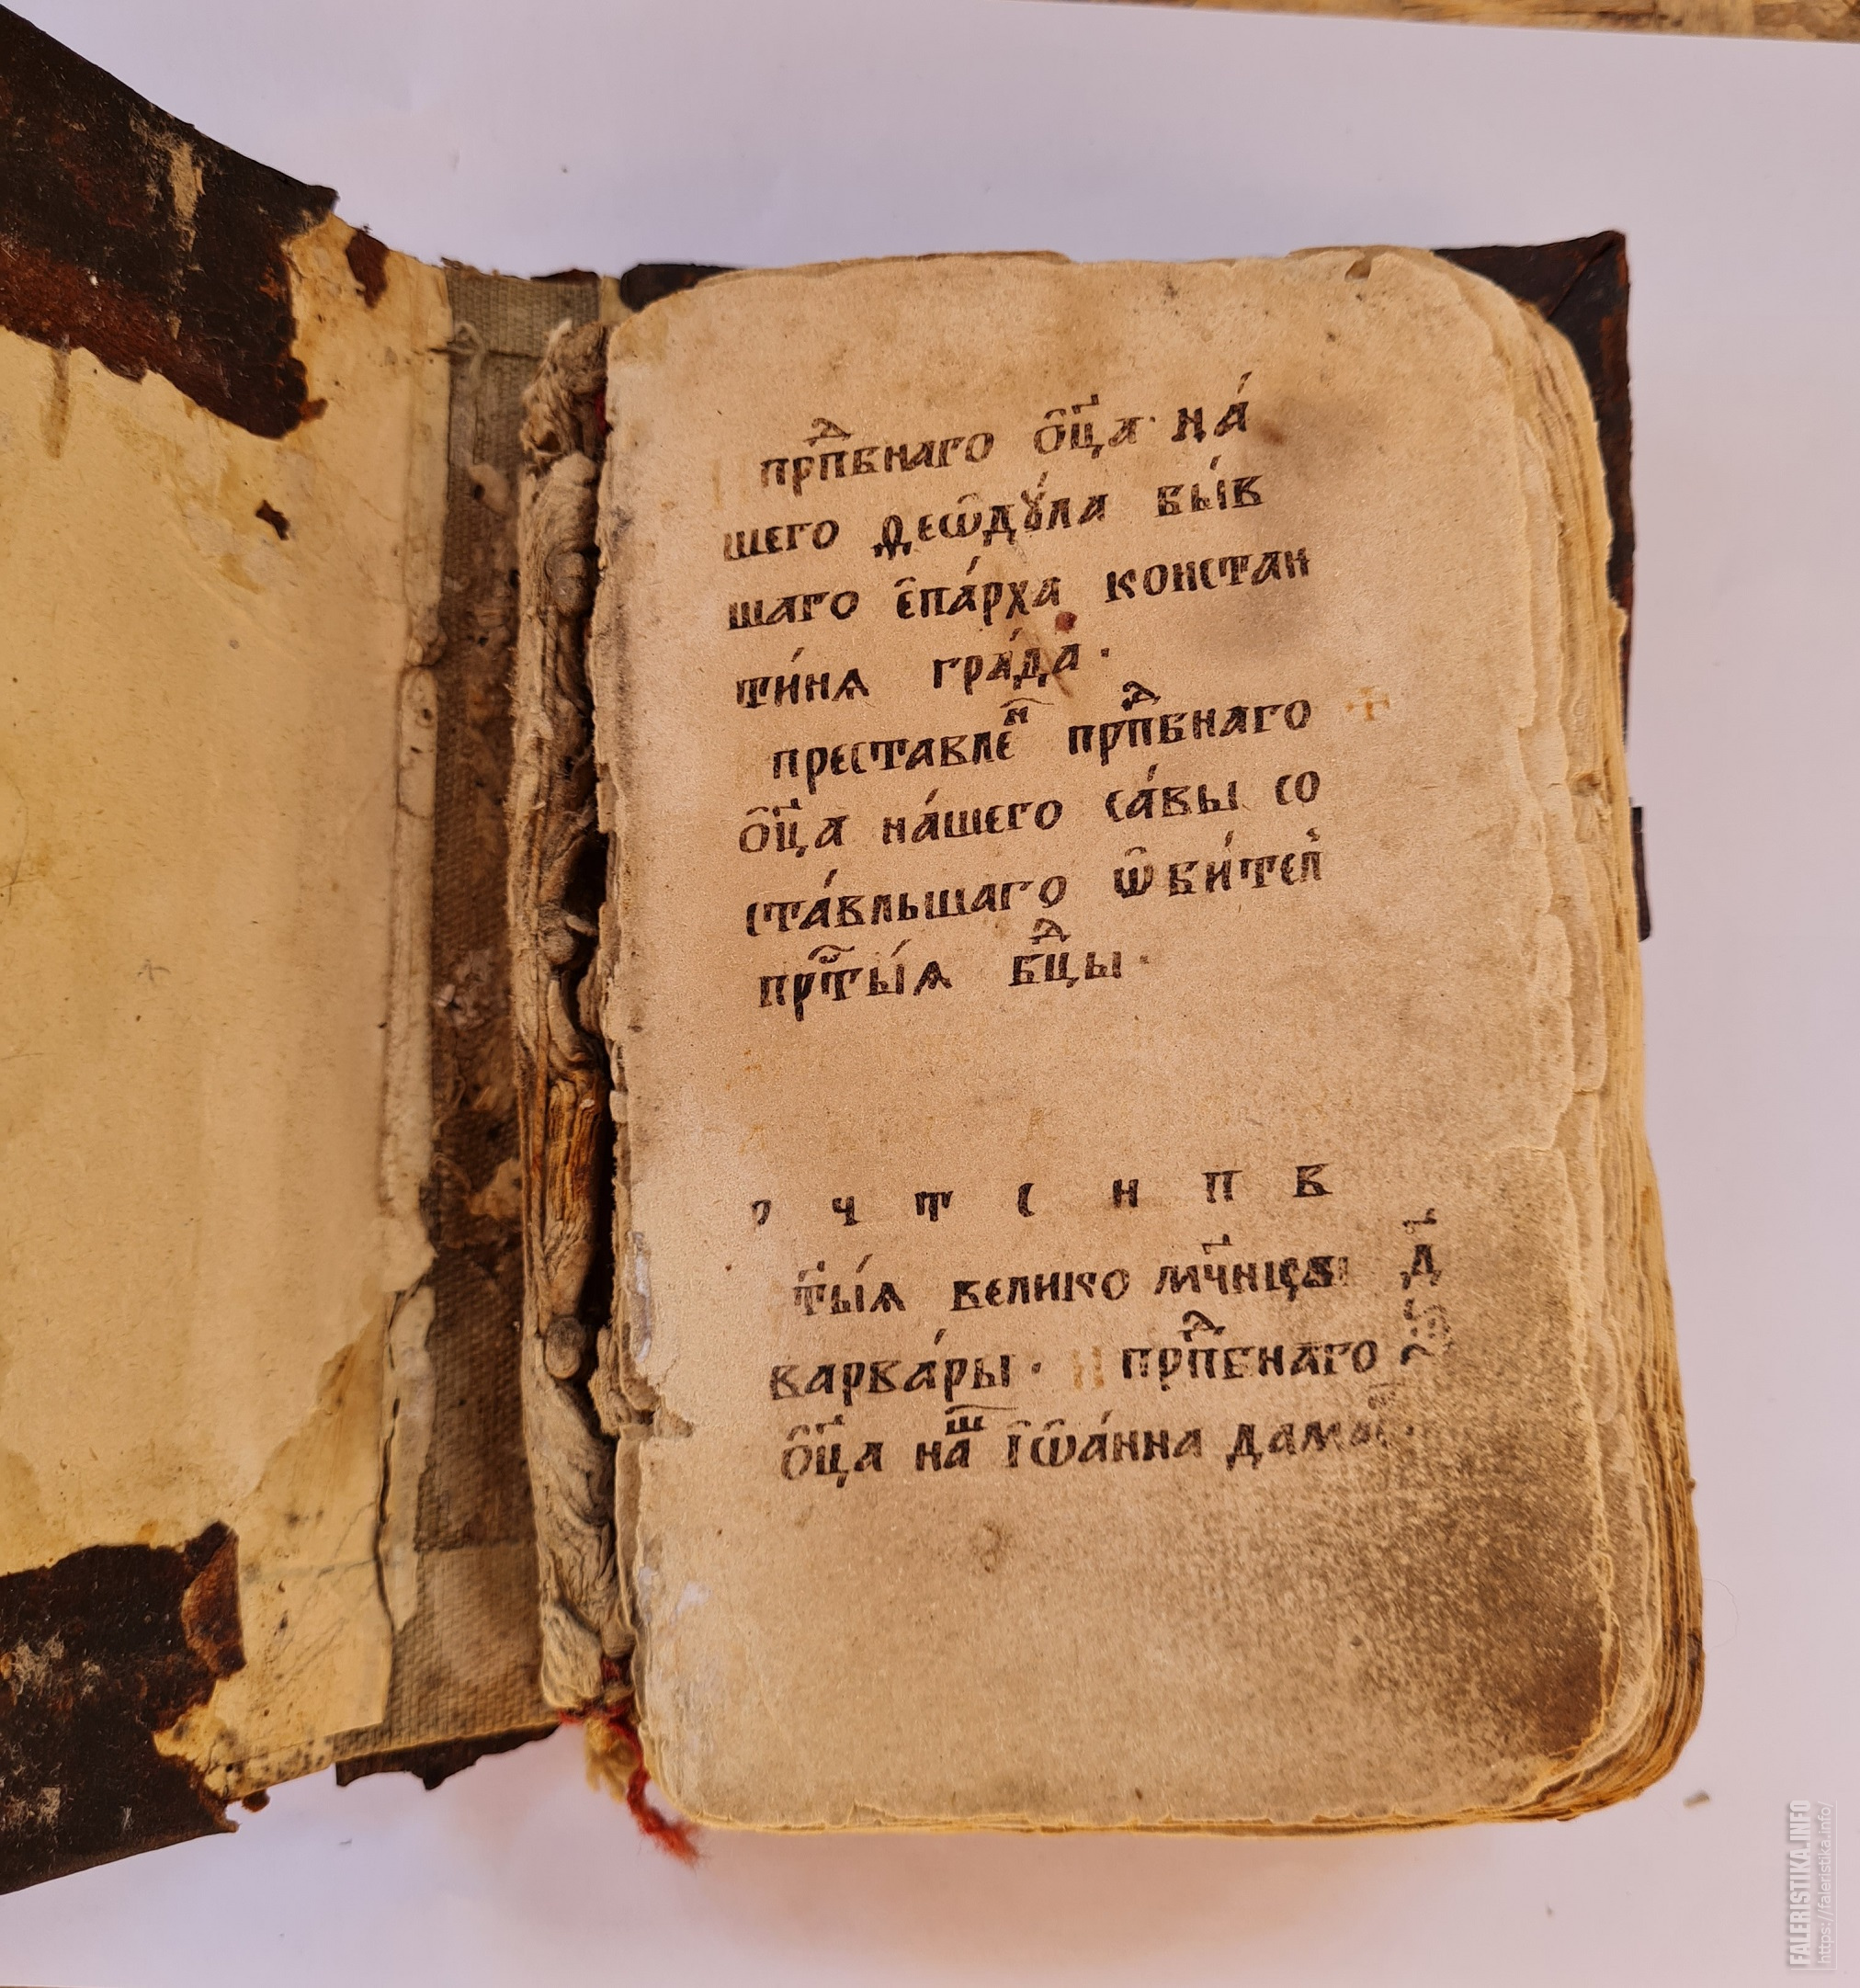 прпⷣбнаго ѻ҆ц҃а на́
шего ѳеѡ҆дꙋ́ла бы́в
шаго є҆па́рха констан
ти́нѧ гра́да.
преставлеⷩ҇ прпⷣбнаго
ѻ҆ц҃а на́шего са́вы со
ста́вльшаго ѡ҆би́тел̀
прⷭ҇ты́ѧ бцⷣы.
ч т с н п в
с҃ты́ѧ велико мч҃ницы д҃
варва́ры. прпⷣбнаго
ѻ҆ц҃а наⷲ҇ і҆ѡ҆а́нна
FALERISTIKA.INFO
https://faleristika.info/